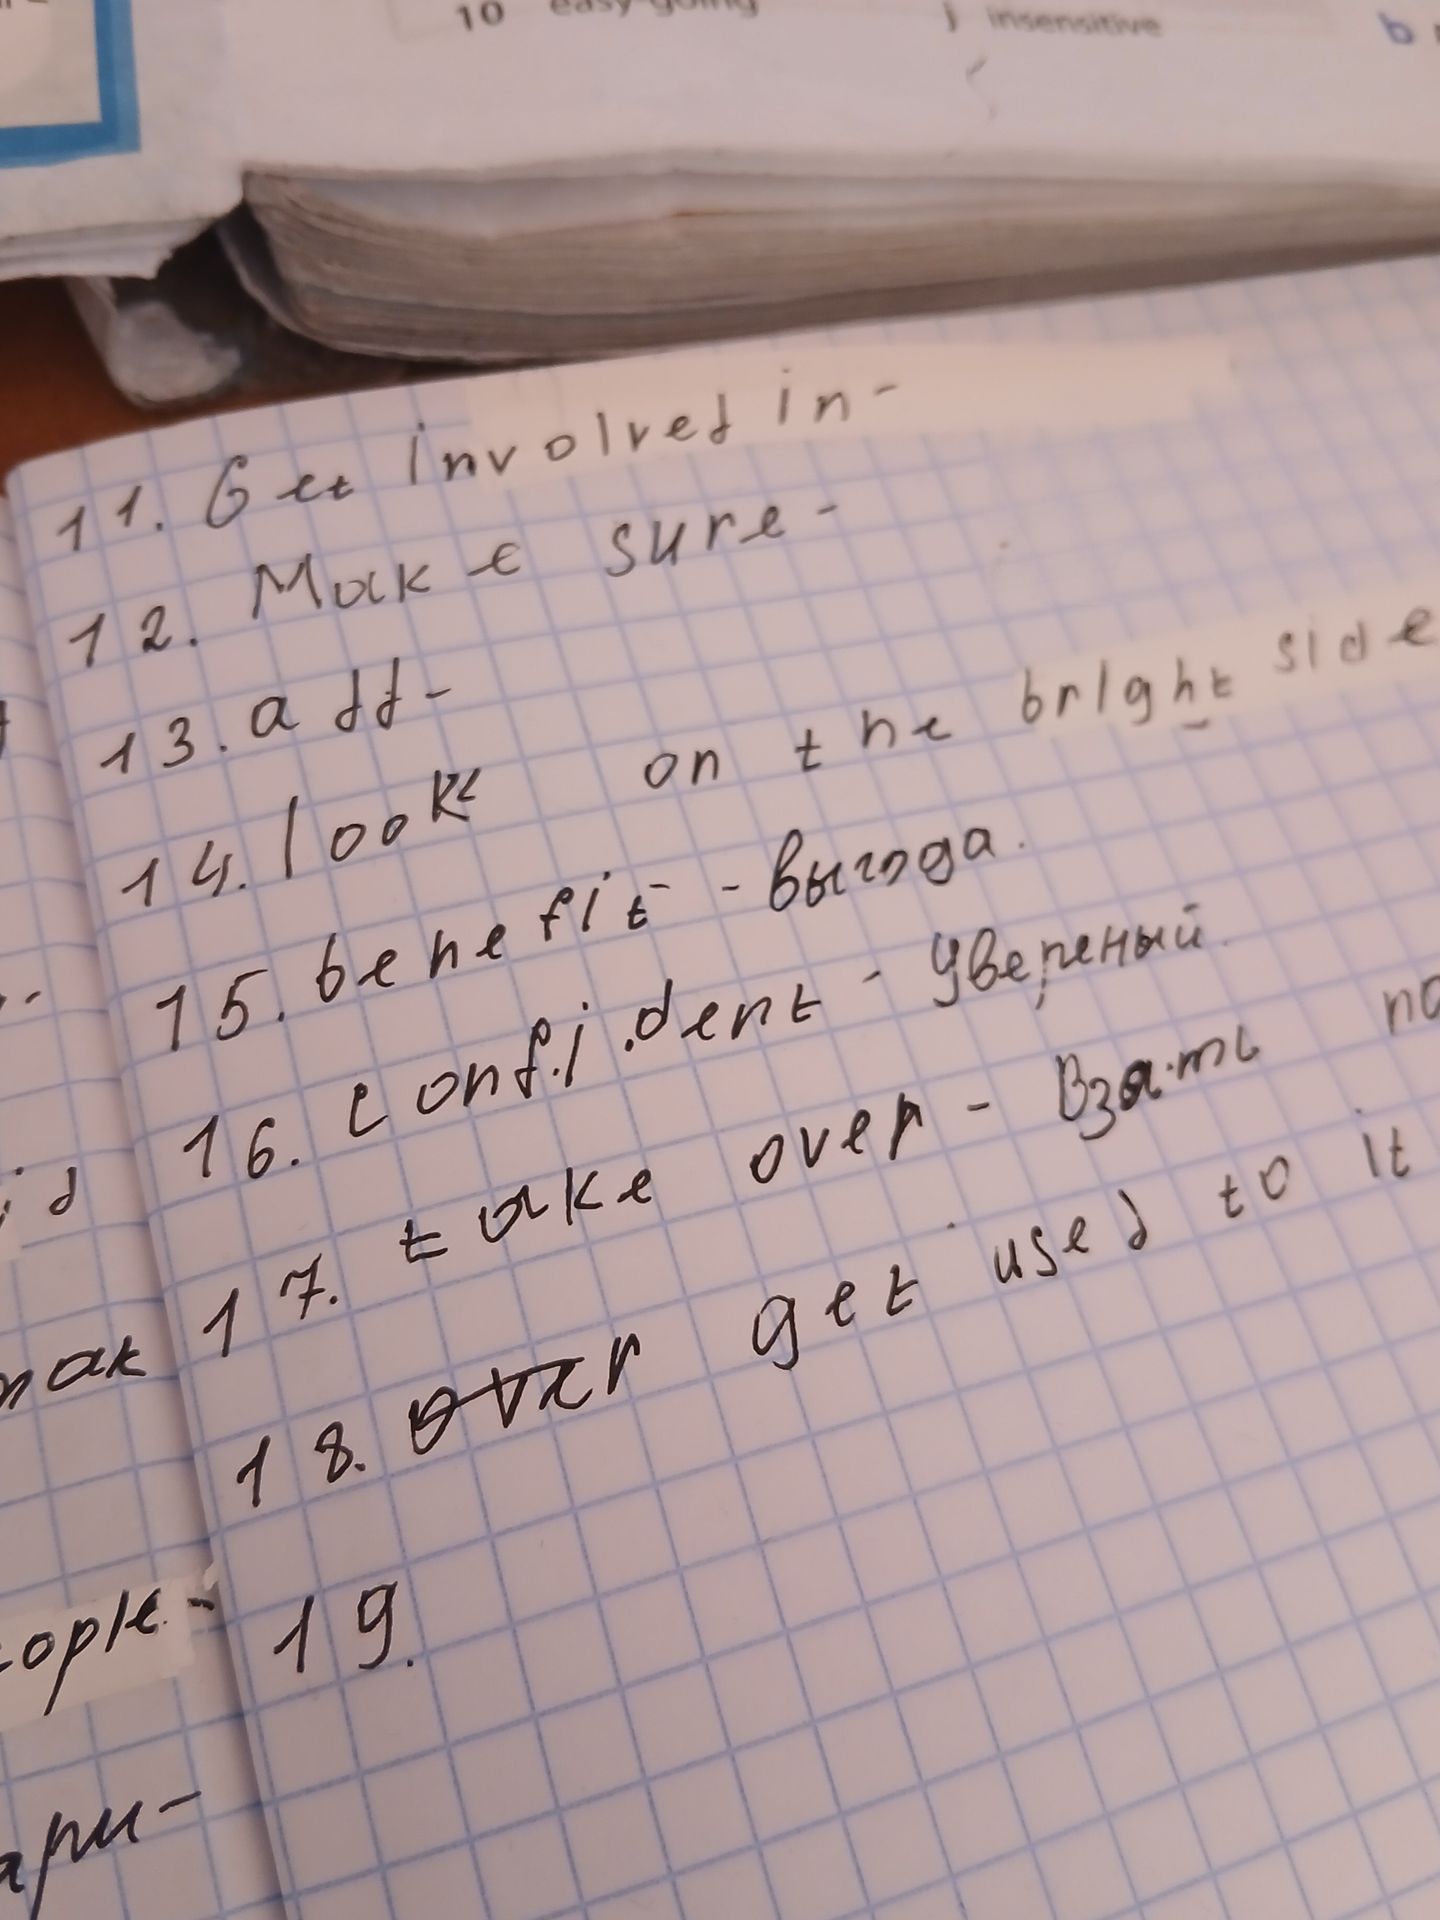 10 easy-going j insensitive b
11. Get involved in-
12. Make sure-
13. add-
14. look on the bright side
15. benefit - выгода.
16. confident - увереный.
17. take over - взять
18. over get used to it
19.